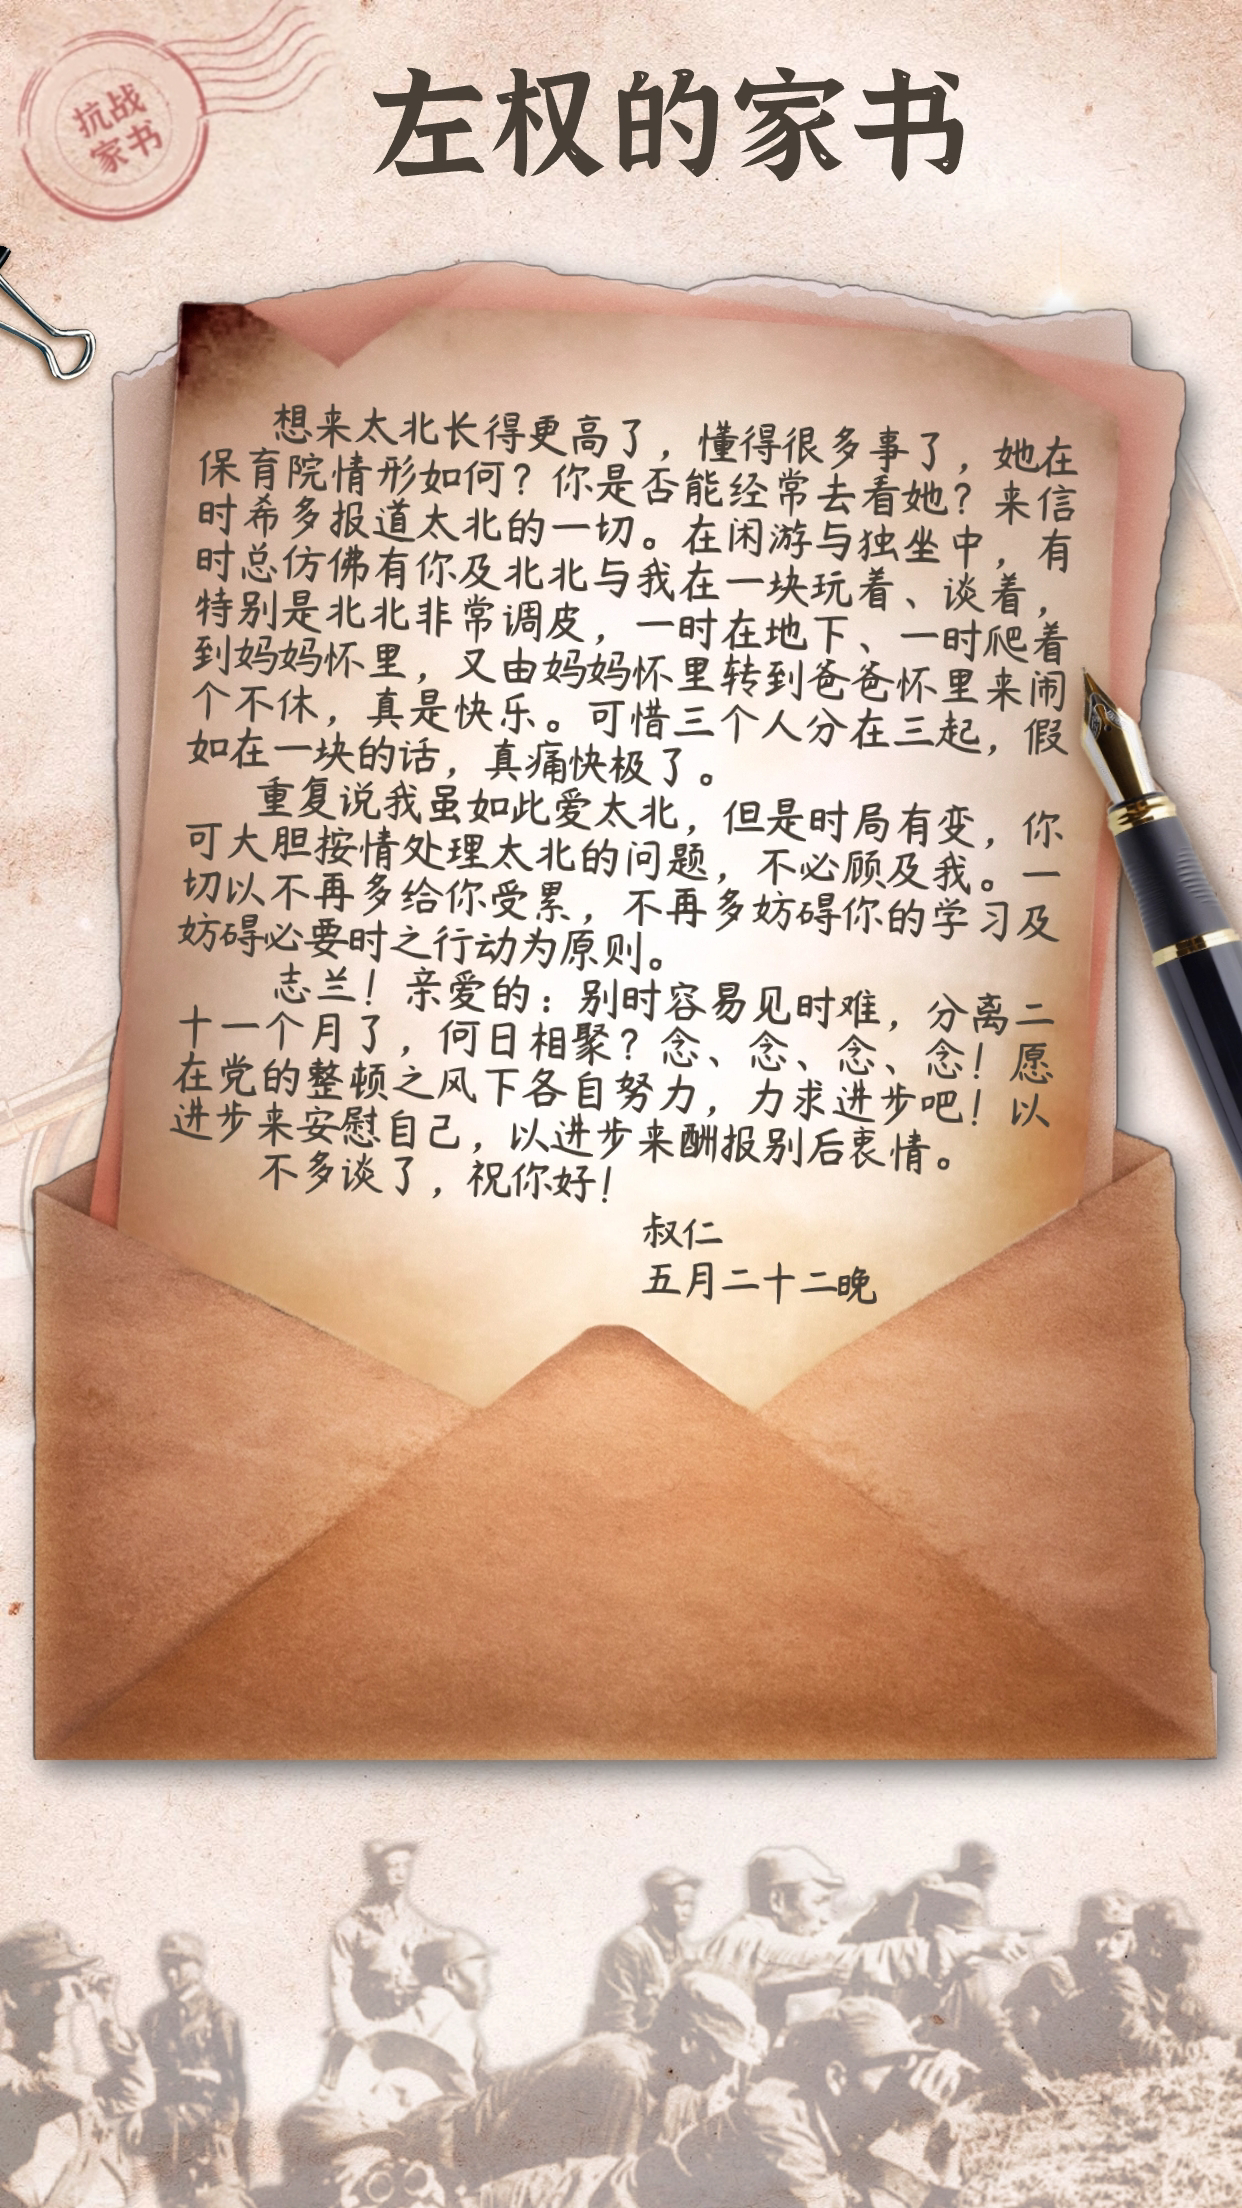 抗战
家书
左权的家书
想来太北长得更高了，懂得很多事了，她在
保育院情形如何？你是否能经常去看她？来信
时希多报道太北的一切。在闲游与独坐中，有
时总仿佛有你及北北与我在一块玩着、谈着，
特别是北北非常调皮，一时在地下、一时爬着
到妈妈怀里，又由妈妈怀里转到爸爸怀里来闹
个不休，真是快乐。可惜三个人分在三起，假
如在一块的话，真痛快极了。
重复说我虽如此爱太北，但是时局有变，你
可大胆按情处理太北的问题，不必顾及我。一
切以不再多给你受累，不再多妨碍你的学习及
妨碍必要时之行动为原则。
志兰！亲爱的：别时容易见时难，分离二
十一个月了，何日相聚？念、念、念、念！愿
在党的整顿之风下各自努力，力求进步吧！以
进步来安慰自己，以进步来酬报别后衷情。
不多谈了，祝你好！
叔仁
五月二十二晚